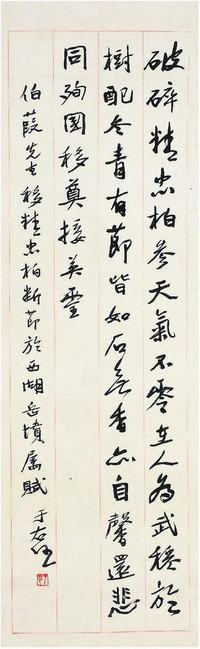 破碎精忠柏參天氣不零在人為武穆於
樹配冬青有節皆如石無香亦自馨還悲
同殉國移奠接英靈
伯葭先生移精忠柏断節於西湖岳墳属賦 于右任